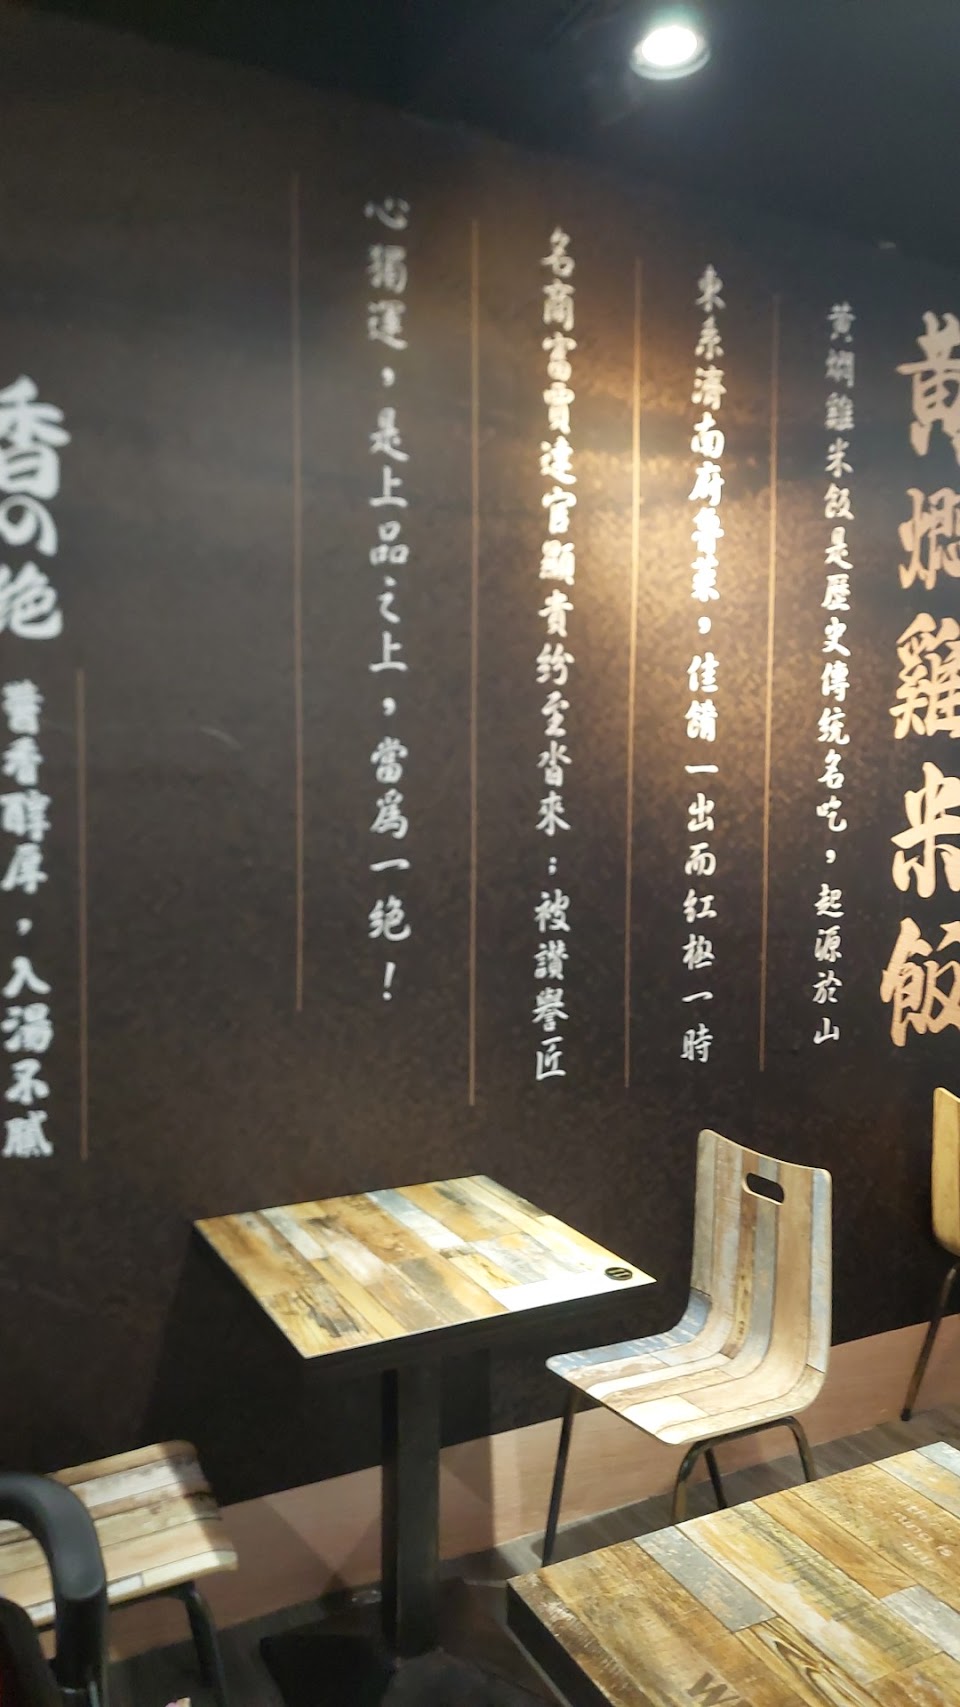 黃燜雞米飯
黃燜雞米飯是歷史傳統名吃，起源於山
東系濟南府魯菜，佳餚一出而紅極一時
名商富賈達官顯貴紛至沓來；被讚譽匠
心獨運，是上品之上，當為一绝！
香の绝
醬香醇厚，入湯不膩